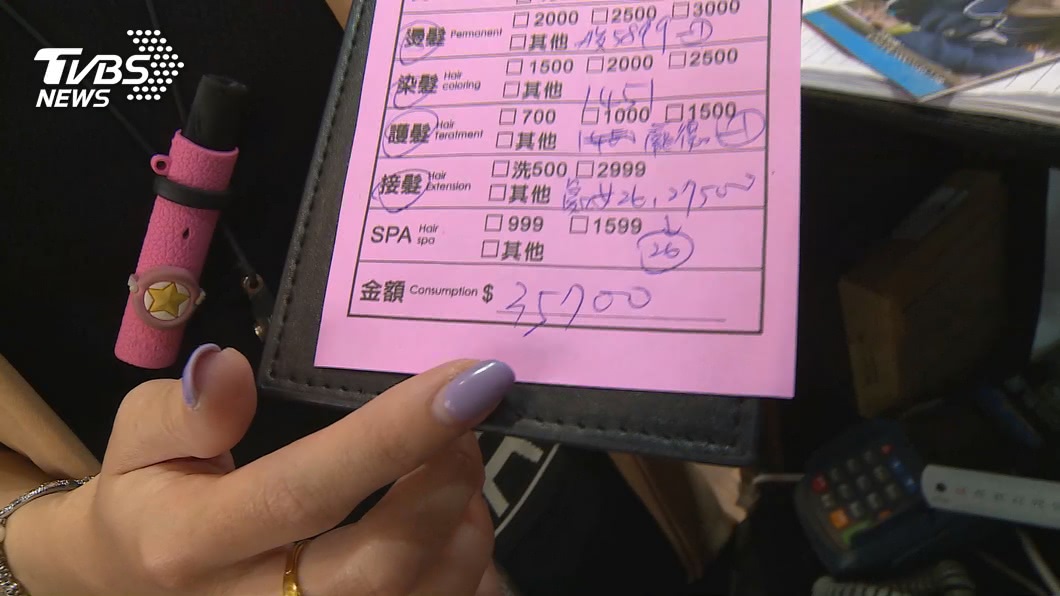 TVBS
NEWS
□2000 □2500 □3000
燙髮 Permanent
□其他 5899
□1500 □2000 □2500
染髮 Hair coloring
□其他 1451
□700 □1000 □1500
護髮 Hair Teratment
□其他
□洗500 □2999
接髮 Hair Extension
□其他 26, 27500
□999 □1599
SPA Hair spa
□其他 26
金額 Consumption $ 35700